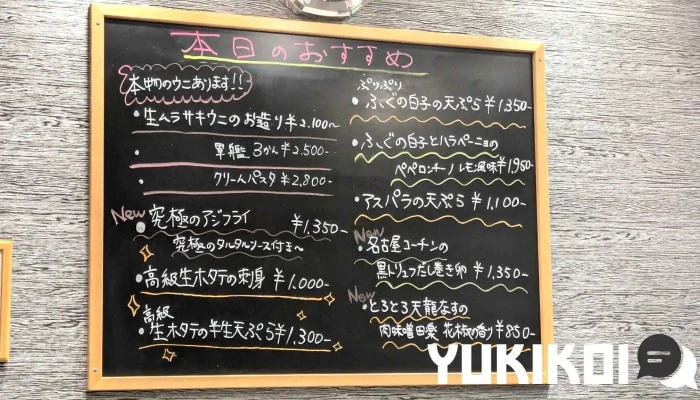 本日のおすすめ
本物のウニあります!!
・生ムラサキウニのお造り ¥2.100~
・軍艦 3かん ¥2.500-
・クリームパスタ ¥2.800-
New
・究極のアジフライ ¥1.350-
究極のタルタルソース付き~
・高級生ホタテの刺身 ¥1.000-
高級
・生ホタテの半生天ぷら ¥1.300-
ぷりぷり
・ふぐの白子の天ぷら ¥1.350-
・ふぐの白子とハラペーニョの
ペペロンチーノ レモン風味 ¥1,950-
・アスパラの天ぷら ¥1,100-
New
・名古屋コーチンの
黒トリュフだし巻き卵 ¥1,350-
New
・とろとろ天龍なすの
肉味噌田楽 花椒の香り ¥850-
YUKIKOI